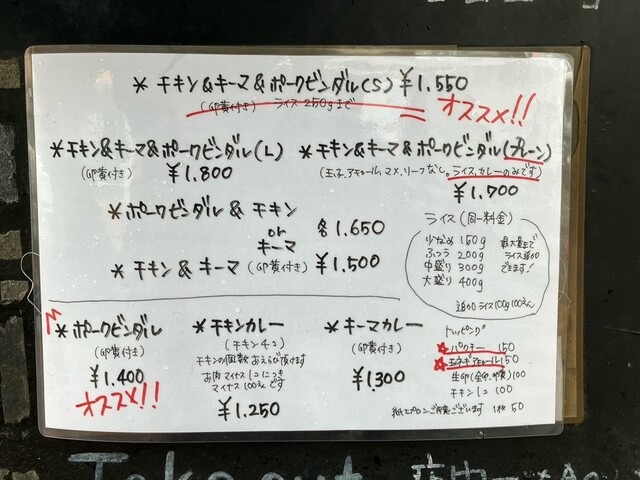 * チキン&キーマ&ポークビンダル(S) ¥1.550
(卵黄付き) ライス250gまで
オススメ!!
* チキン&キーマ&ポークビンダル(L)
(卵黄付き) ¥1.800
* チキン&キーマ&ポークビンダル(プレーン)
(玉子,アチャール,マメ,リーフなし。ライス,カレーのみです)
¥1.700
* ポークビンダル & チキン
or
キーマ
各1.650
* チキン & キーマ (卵黄付き) ¥1.500
ライス (同一料金)
少なめ 150g
ふつう 200g
中盛り 300g
大盛り 400g
最大量まで
ライス追加
できます!
追加ライス100g100えん
* ポークビンダル
(卵黄付き)
¥1.400
オススメ!!
* チキンカレー
(チキン4コ)
チキンの個数おえらび頂けます
お肉マイナス1コにつき
マイナス100えんです
¥1.250
* キーマカレー
(卵黄付き)
¥1.300
トッピング
☆パクチー 150
☆玉ネギアチャール150
生卵(全卵,卵黄)100
チキン1コ 100
紙エプロンご用意ございます 1枚50
Take out